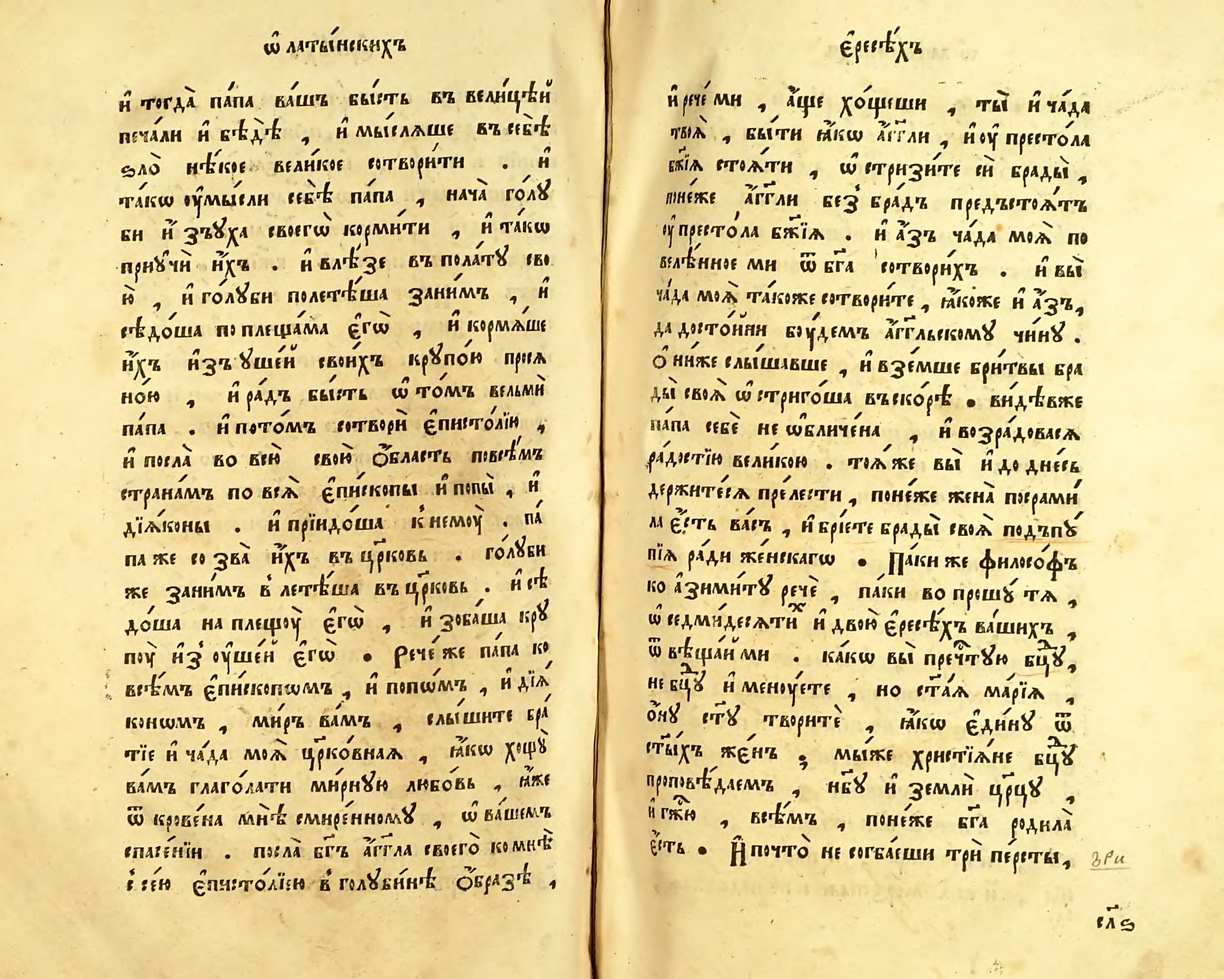 ѿ латы́нскихъ
и҆ тогда̀ па́па ва́шъ бы́сть въ вели́цѣй
печа́ли и҆ бѣ́дѣ , и҆ мы́слѧше въ себѣ
ѕло̀ нѣ́кое вели́кое сотвори́ти . и҆
та́кѡ оу҆мы́сли себѣ̀ па́па , нача̀ го́лꙋ
би и҆ зъꙋ́ха своегѡ̀ корми́ти , и҆ та́кѡ
приꙋчѝ и҆́хъ . и҆ влѣ́зе въ пола́тꙋ сво
ю̀ , и҆ го́лꙋби полетѣ́ша зани́мъ , и҆
сѣдо́ша по плеща́ма є҆гѡ̀ , и҆ кормѧ́ше
и҆́хъ и҆зъ ꙋше́й свои́хъ крꙋпо́ю просѧ
но́ю , и҆ ра́дъ бы́сть ѡ҆ то́мъ вельмѝ
па́па . и҆ пото́мъ сотворѝ є҆писто́лїю ,
и҆ посла̀ во всю̀ свою̀ ѻ҆́бласть повсѣ́мъ
страна́мъ по всѧ̀ є҆пи́скопы и҆ попы̀ , и҆
дїѧ́коны . и҆ прїидо́ша к немоу̀ . па́
па же со зва̀ и҆́хъ въ цр҃ковь . го́лꙋби
же зани́мъ в летѣ́ша въ цр҃ковь . и҆ сѣ
до́ша на плещоу̀ є҆гѡ̀ , и҆ зоба́ша крꙋ
поу̀ и҆з̾ оу҆ше́й є҆гѡ̀ . Рече́ же па́па ко
всѣ́мъ є҆пи́скопѡмъ , и҆ попѡ́мъ , и҆ дїѧ́
конѡмъ , ми́ръ ва́мъ , слы́шите бра́
тїе и҆ ча́да моѧ̀ цр҃ко́внаѧ , ꙗ҆́кѡ хощꙋ̀
ва́мъ глаго́лати ми́рнꙋю любо́вь , ꙗ҆́же
ѿ крове́на мнѣ̀ смире́нномꙋ , ѡ҆ ва́шемъ
спасе́нїи . посла̀ бг҃ъ а҆́гг҃ла своего̀ ко мнѣ̀
с сею̀ є҆писто́лїею в̾ голꙋби́нѣ ѻ҆́бразѣ ,
є҆ресѣ́хъ
и҆ рече́ ми , а҆́ще хо́щеши , ты̀ и҆ ча́да
твоѧ̀ , бы́ти ꙗ҆́кѡ а҆́гг҃ли , и҆ оу҆ престо́ла
бж҃їѧ стоѧ́ти , ѡ҆стризи́те сѝ брады̀ ,
поне́же а҆́гг҃ли без̾ бра́дъ предъстоѧ́тъ
оу҆ престо́ла бж҃їѧ . и҆ а҆́зъ ча́да моѧ̀ по
велѣ́нное ми ѿ бг҃а сотвори́хъ . и҆ вы̀
ча́да моѧ̀ та́коже сотвори́те , ꙗ҆́коже и҆ а҆́зъ,
да досто́йни боу́демъ а҆́гг҃льскомꙋ чи́нꙋ .
Ѻ҆ ни́же слы́шавше , и҆ взе́мше бри́твы бра
ды̀ своѧ̀ ѡ҆стриго́ша въско́рѣ . ви́дѣвже
па́па себѐ не ѡ҆бличе́на , и҆ возра́довасѧ
ра́достїю вели́кою . тоѧ́же вы̀ и҆ до дне́сь
держите́сѧ пре́лести , поне́же жена̀ посрами́
ла є҆́сть ва́съ , и҆ брі́ете брады̀ своѧ̀ подъпꙋ́
пїѧ ра́ди же́нскагѡ . Па́ки же фило́соѳъ
ко а҆зими́тꙋ речѐ , па́ки во прошꙋ̀ тѧ ,
ѡ҆ седми́десѧтиⷯ и҆ двою̀ є҆ресѣ́хъ ва́шихъ ,
ѿ вѣща́й ми . ка́кѡ вы̀ пречⷭ҇тꙋю бцⷣꙋ,
не бцⷣꙋ и҆ меноу́ете , но ст҃а́ѧ марі́ѧ ,
ѻ҆́нꙋ ст҃ꙋ твори́тѐ , ꙗ҆́кѡ є҆ди́нꙋ ѿ
ст҃ы́хъ же́нъ ; мы́же христїѧ́не бцⷣꙋ
проповѣ́даемъ , нб҃ꙋ и҆ землѝ цр҃цꙋ ,
и҆ гжⷭ҇ю , всѣ́мъ , поне́же бг҃а родила̀
є҆́сть . И҆ почто̀ не согба́еши трѝ пе́рсты,
зри
сл҃ѕ